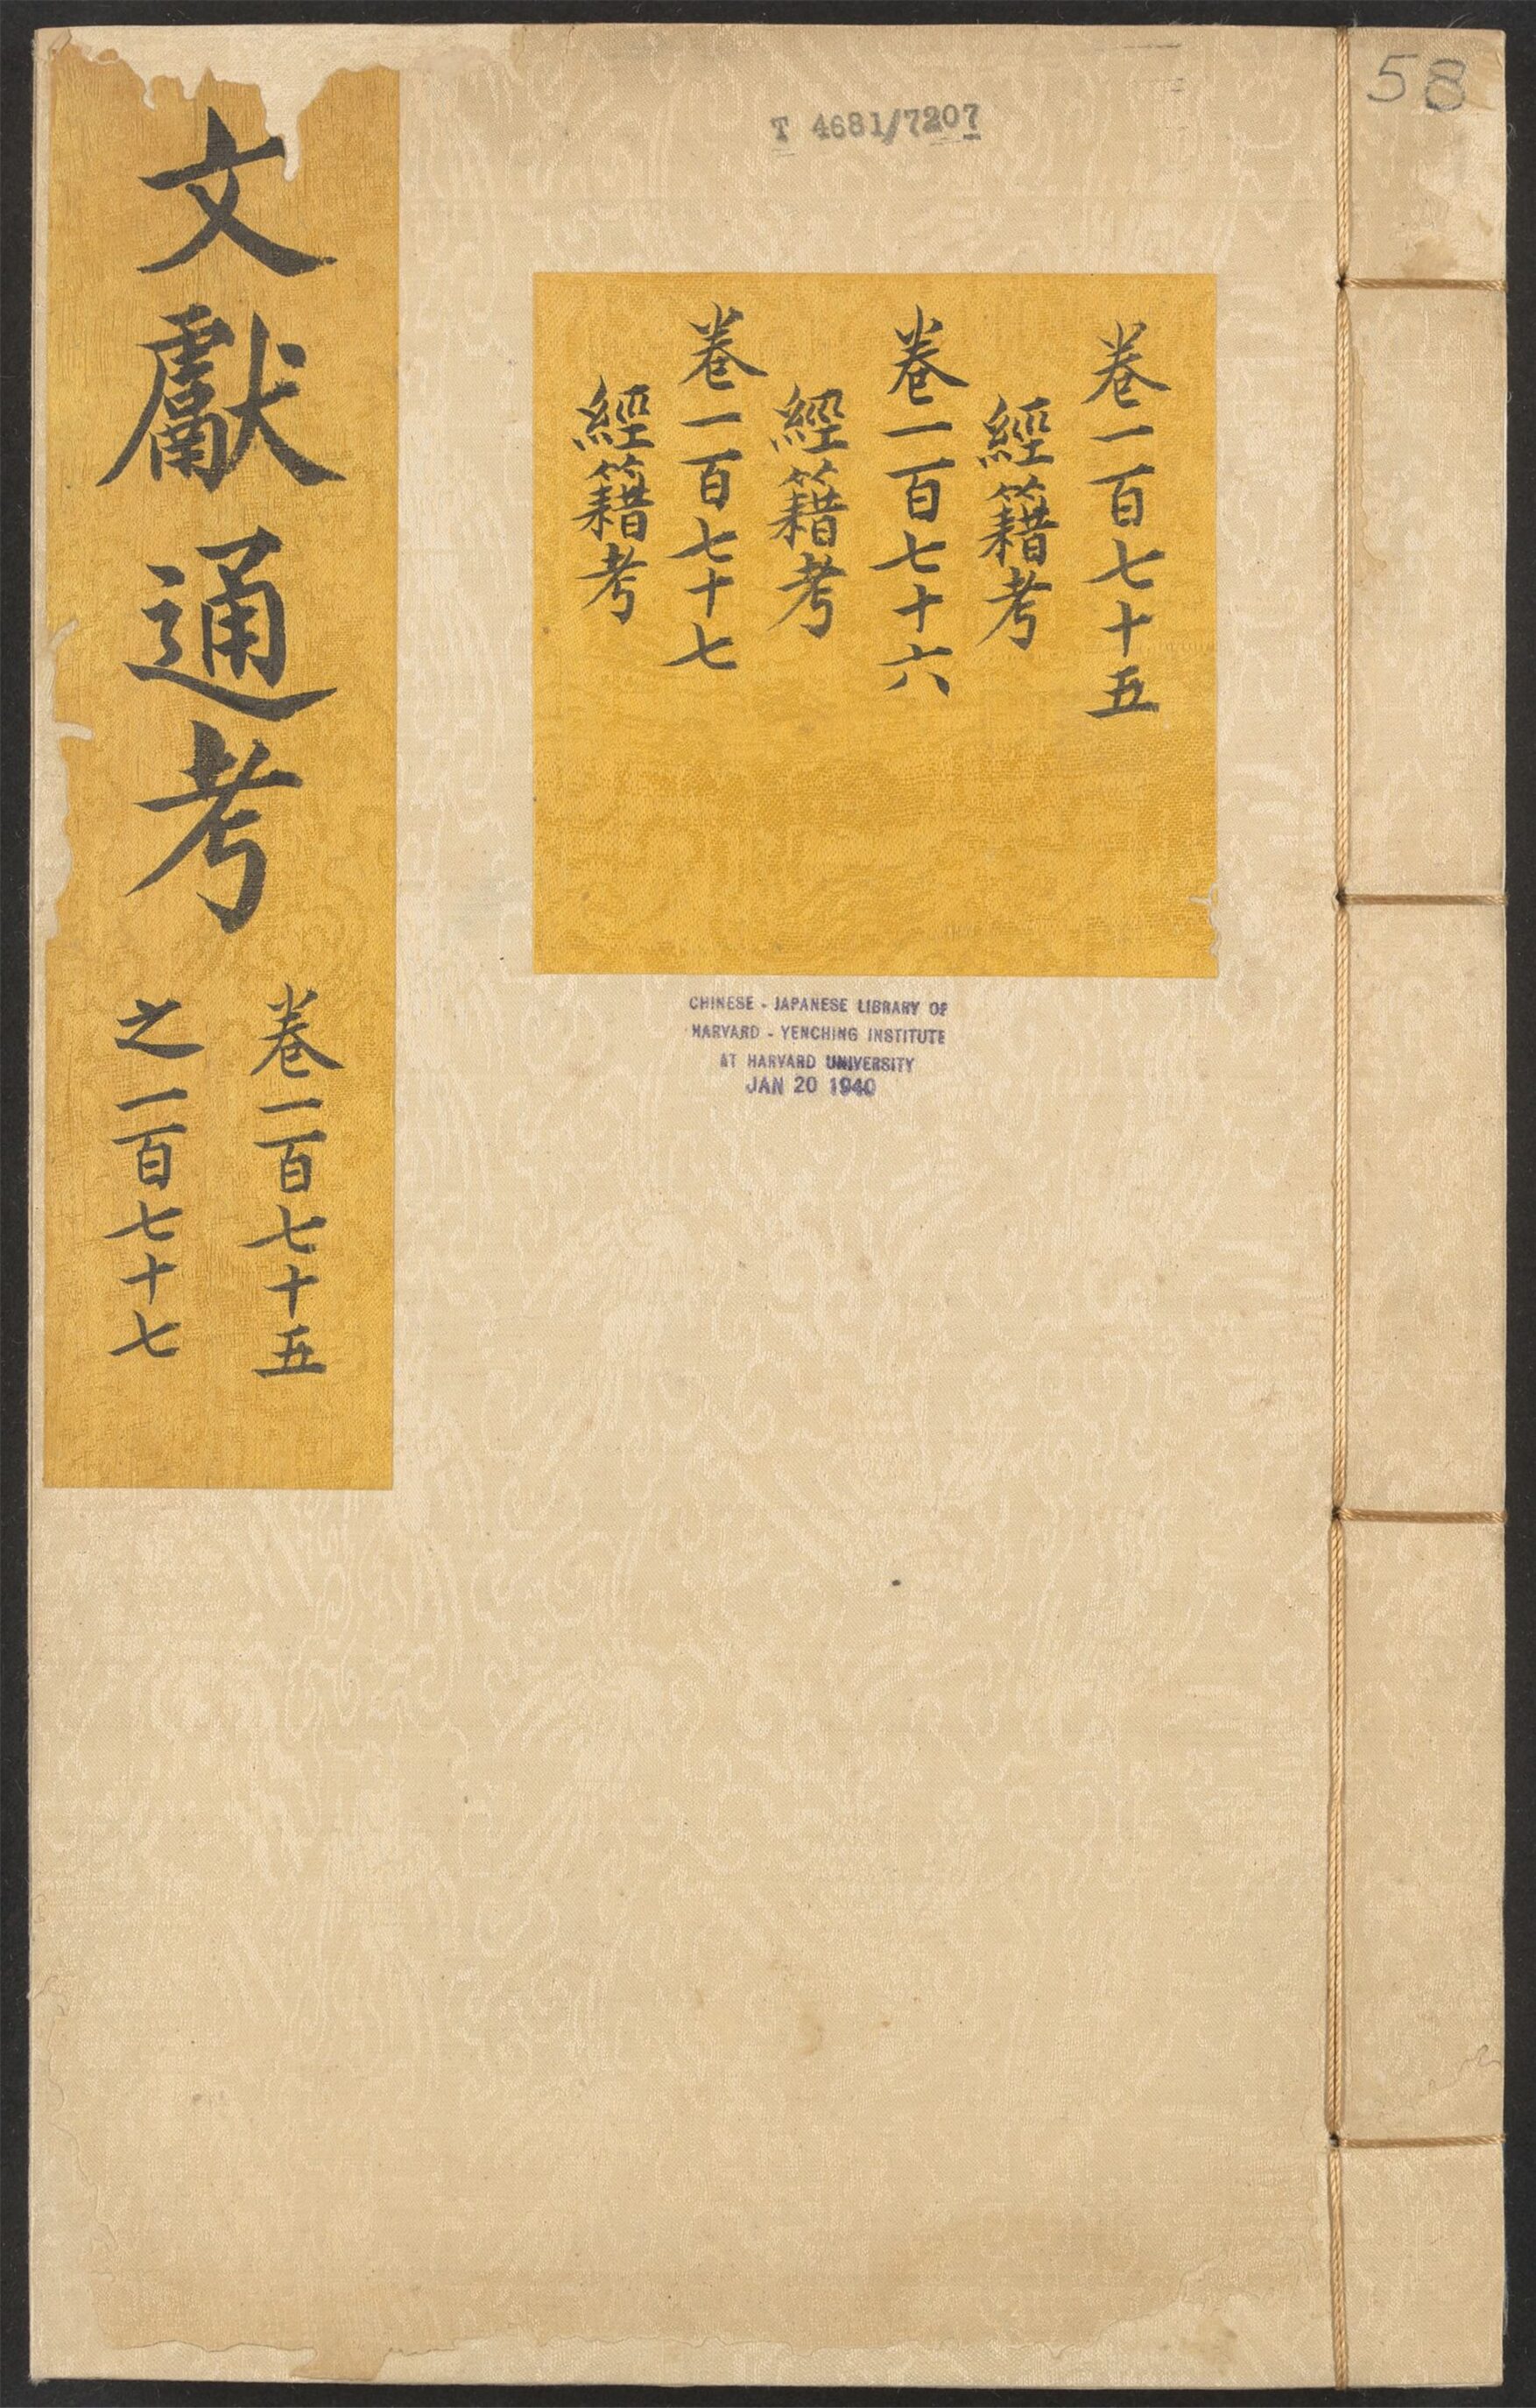 58
T 4681/7207
卷一百七十五
經籍考
卷一百七十六
經籍考
卷一百七十七
經籍考
CHINESE - JAPANESE LIBRARY OF
HARVARD - YENCHING INSTITUTE
AT HARVARD UNIVERSITY
JAN 20 1940
文獻通考
卷一百七十五
之一百七十七